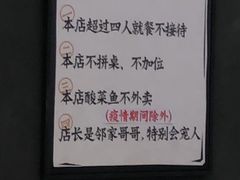 一 本店超过四人就餐不接待
二 本店不拼桌、不加位
三 本店酸菜鱼不外卖
(疫情期间除外)
四 店长是邻家哥哥,特别会宠人